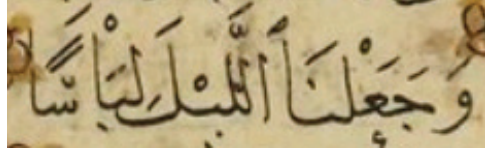 وَجَعَلْنَا اللَّيْلَ لِبَاسًا